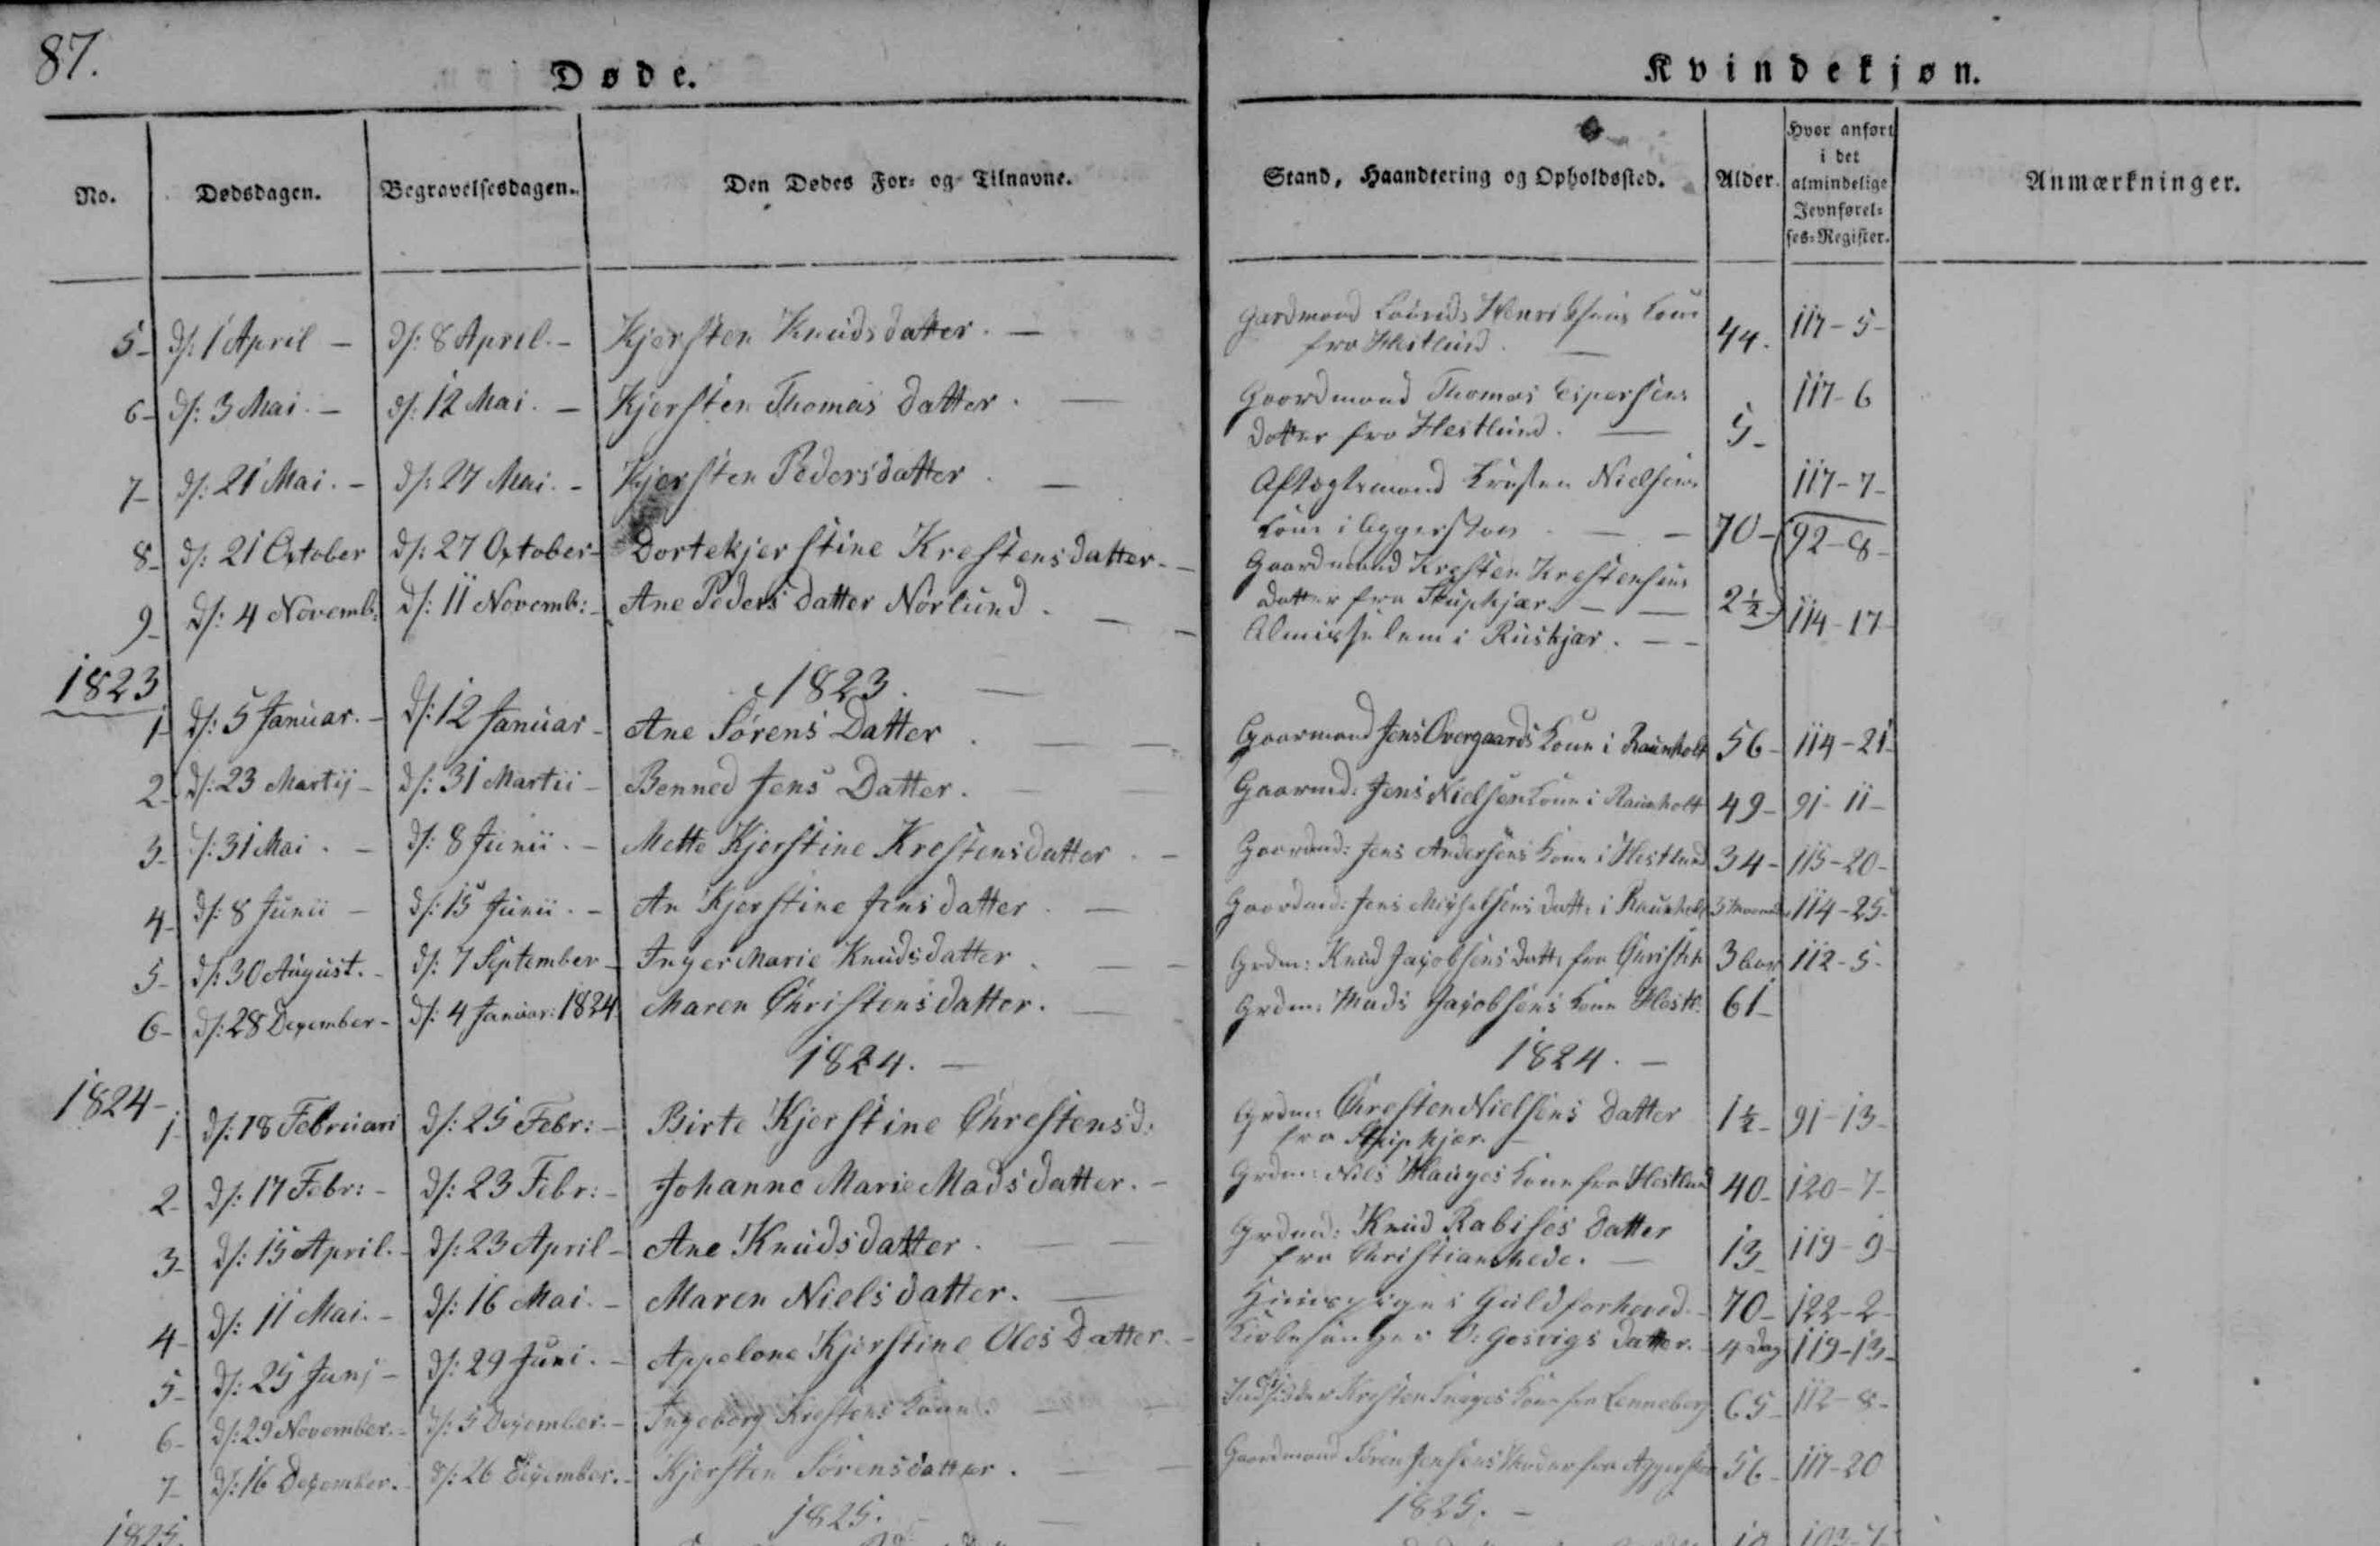 87.
Døde.
Kvindekjøn.
No.
Dødsdagen.
Begravelsesdagen.
Den Dødes For- og Tilnavne.
Stand, Haandtering og Opholdssted.
Alder.
Hvor anført
i det
almindelige
Jevnførel-
ses-Register.
Anmærkninger.
5- d/: 1 April - d/: 8 April. - Kjersten Knudsdatter. -
6- d/: 3 Mai. - d/: 12 Mai. - Kjersten Thomas datter. -
7- d/: 21 Mai. - d/: 27 Mai. - Kjersten Pedersdatter. -
8- d/: 21 October d/: 27 October- Dortekjerstine Krestensdatter. -
9- d/: 4 Novemb: d/: 11 Novemb: - Ane Peders datter Nørlund. -
1823
1823. -
1- d/: 5 Januar. - d/: 12 Januar - Ane Sørens Datter. -
2- d/: 23 Martij - d/: 31 Martii - Benned Jens Datter. -
3- d/: 31 Mai. - d/: 8 Junii. - Mette Kjerstine Krestensdatter. -
4- d/: 8 Junii - d/: 15 Junii. - An Kjerstine Jensdatter. -
5- d/: 30 August. - d/: 7 September - Inger Marie Knudsdatter. -
6- d/: 28 December - d/: 4 Januar: 1824. Maren Christensdatter. -
1824. -
1824-
1- d/: 18 Februari d/: 25 Febr: - Birte Kjerstine Chrestensd:
2- d/: 17 Febr: - d/: 23 Febr: - Johanne Marie Madsdatter. -
3- d/: 15 April. - d/: 23 April - Ane Knudsdatter. -
4- d/: 11 Mai. - d/: 16 Mai. - Maren Nielsdatter. -
5- d/: 25 Junj - d/: 29 Juni. - Appelone Kjerstine Oles Datter. -
6- d/: 29 November. - d/: 5 December. - Ingeborg Krestens
7- d/: 16 December. - d/: 26 December. - Kjersten Sørensdatter. -
1825. -
1825.
Gardmand Henriksens Kone
fra Hestlund. - 44. 117-5-
Gaardmand Thomas Espersens
datter fra Hestlund. - 5- 117-6
Aftægtsmand Kristen Nielsens
Kone i - 70- 117-7-
Gaardmand Kresten Krestensens
datter fra - 2½- 92-8-
Almisselem i Ruskjær. - 114-17-
Gaarmand Jens Overgaards Kone i Raunholt 56- 114-21-
Gaarmd: Jens Nielsen Kone i Raunholt 49- 91-11-
Gaardmd: Jens Andersens Kone i Hestlund 34- 115-20-
Gaardmd: Jens Datt: i Raunholt 114-25-
Grdm: Knud Jacobsens datt: fra 112-5-
Grdm: Mads Jacobsens Kone Hestl: 61-
1824. -
Grdm: Chresten Nielsens Datter
fra - 1½- 91-13-
Grdm: Nils Hauges Kone fra Hestlund 40- 120-7-
Grdmd: Knud Rabises Datter
fra Christianshede. - 13- 119-9-
i Guldforhoved. - 70- 122-2-
Kirkesanger O: Gosvigs datter. - 4 Dag 119-13-
Indsidder Kresten Kone fra Lenneberg 65- 112-8-
Gaardmand Søren Jensens Moder fra 56- 117-20
1825. -